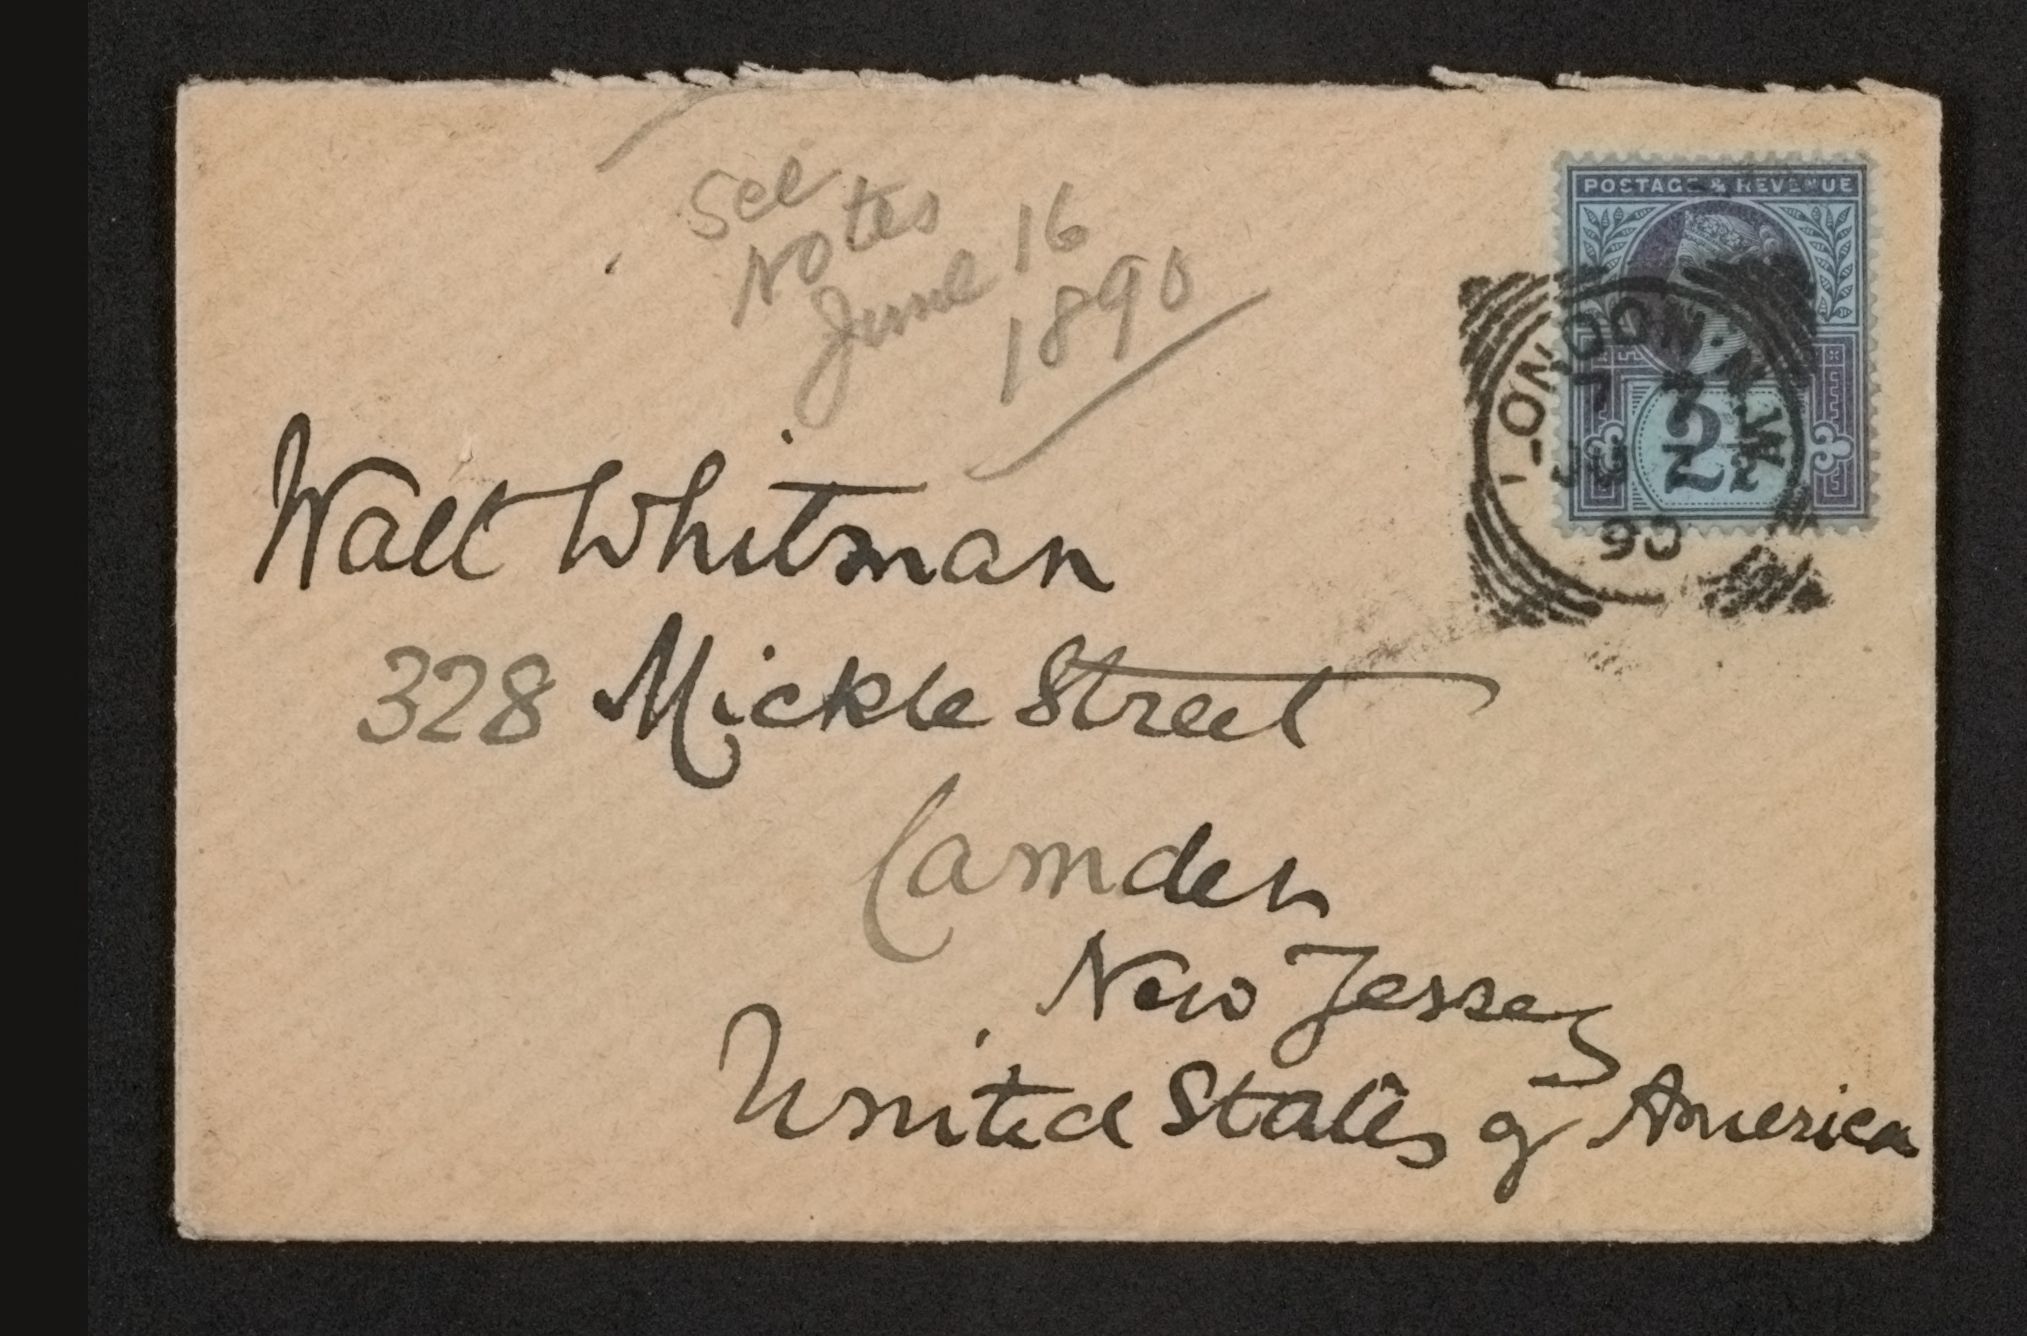 See
Notes
June 16
1890
POSTAGE & REVENUE
LONDON · N.W
7
JU
90
2½
Walt Whitman
328 Mickle Street
Camden
New Jersey
United States of America